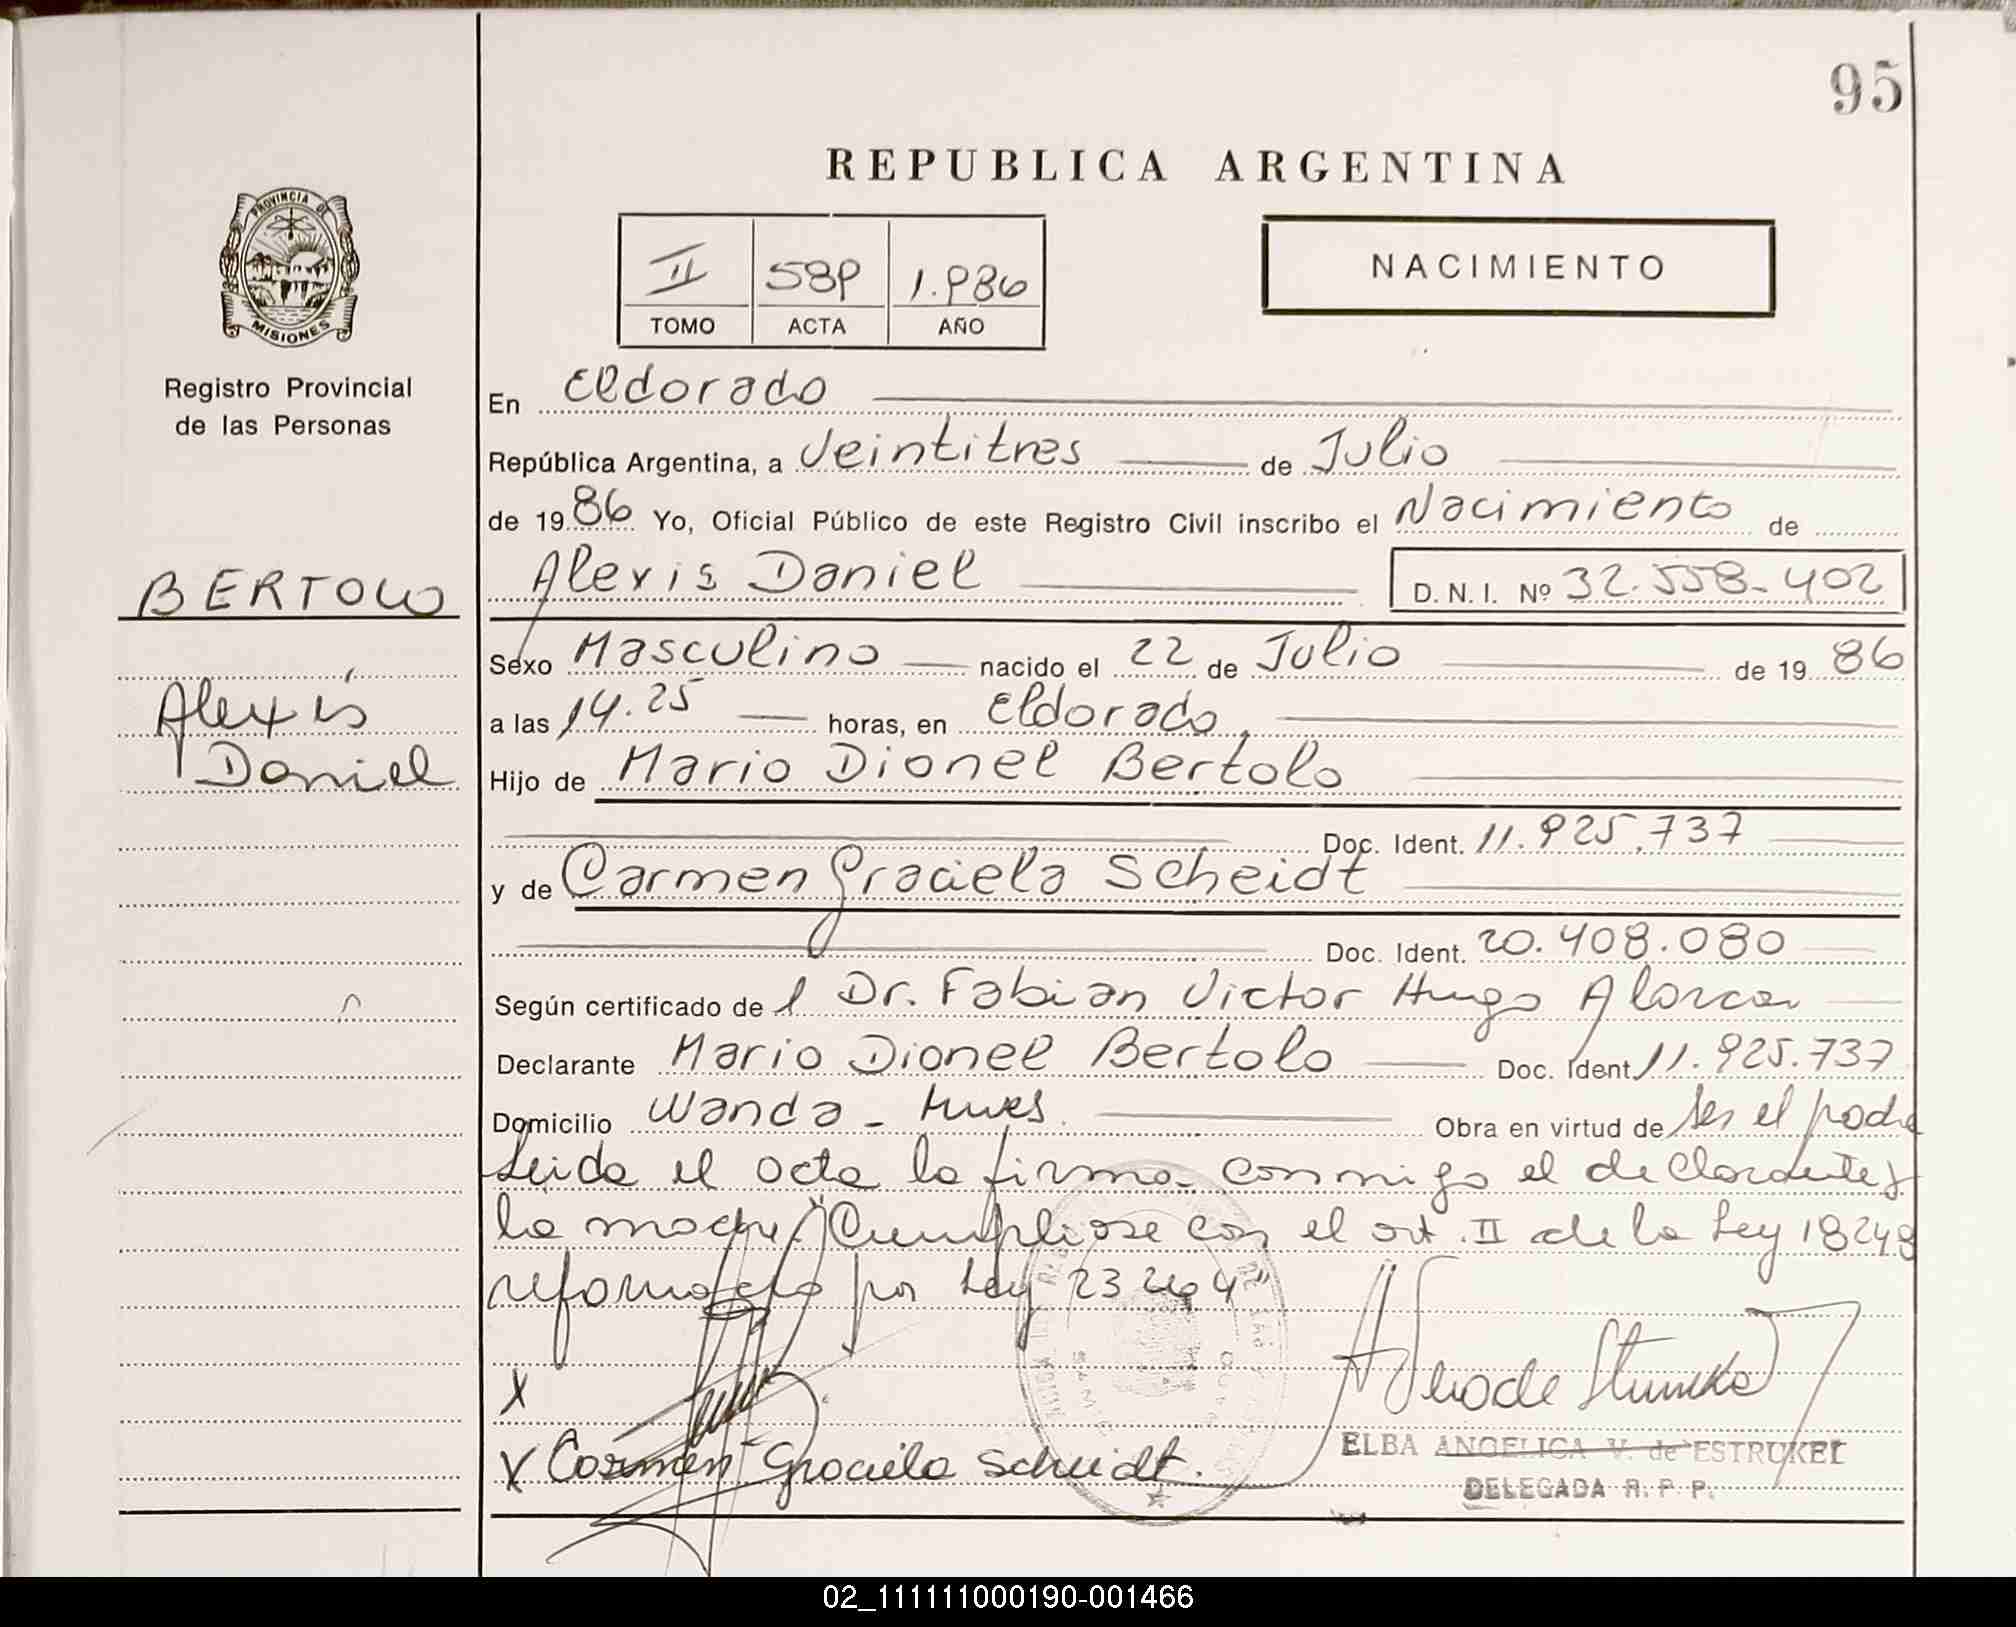 95
REPUBLICA ARGENTINA
PROVINCIA DE
MISIONES
Registro Provincial
de las Personas
II 589 1.986
TOMO ACTA AÑO
NACIMIENTO
En Eldorado
República Argentina, a Veintitres de Julio
de 1986 Yo, Oficial Público de este Registro Civil inscribo el Nacimiento de
BERTOLO
Alexis Daniel D.N.I. Nº 32.558.402
Sexo Masculino nacido el 22 de Julio de 1986
Alexis
a las 14.25 horas, en Eldorado
Daniel
Hijo de Mario Dionel Bertolo
Doc. Ident. 11.925.737
y de Carmen Graciela Scheidt
Doc. Ident. 20.408.080
Según certificado del Dr. Fabian Victor Hugo Alarcon
Declarante Mario Dionel Bertolo Doc. Ident 11.925.737
Domicilio Wanda - Mnes. Obra en virtud de ser el padre
Leida el acta la firma conmigo el declarante y
la madre. "Cumpliose con el art. II de la Ley 18248
reformado por Ley 23264"
X
X Carmen Graciela Scheidt.
ELBA ANGELICA V. de ESTRUKEL
DELEGADA R. P. P.
02_111111000190-001466